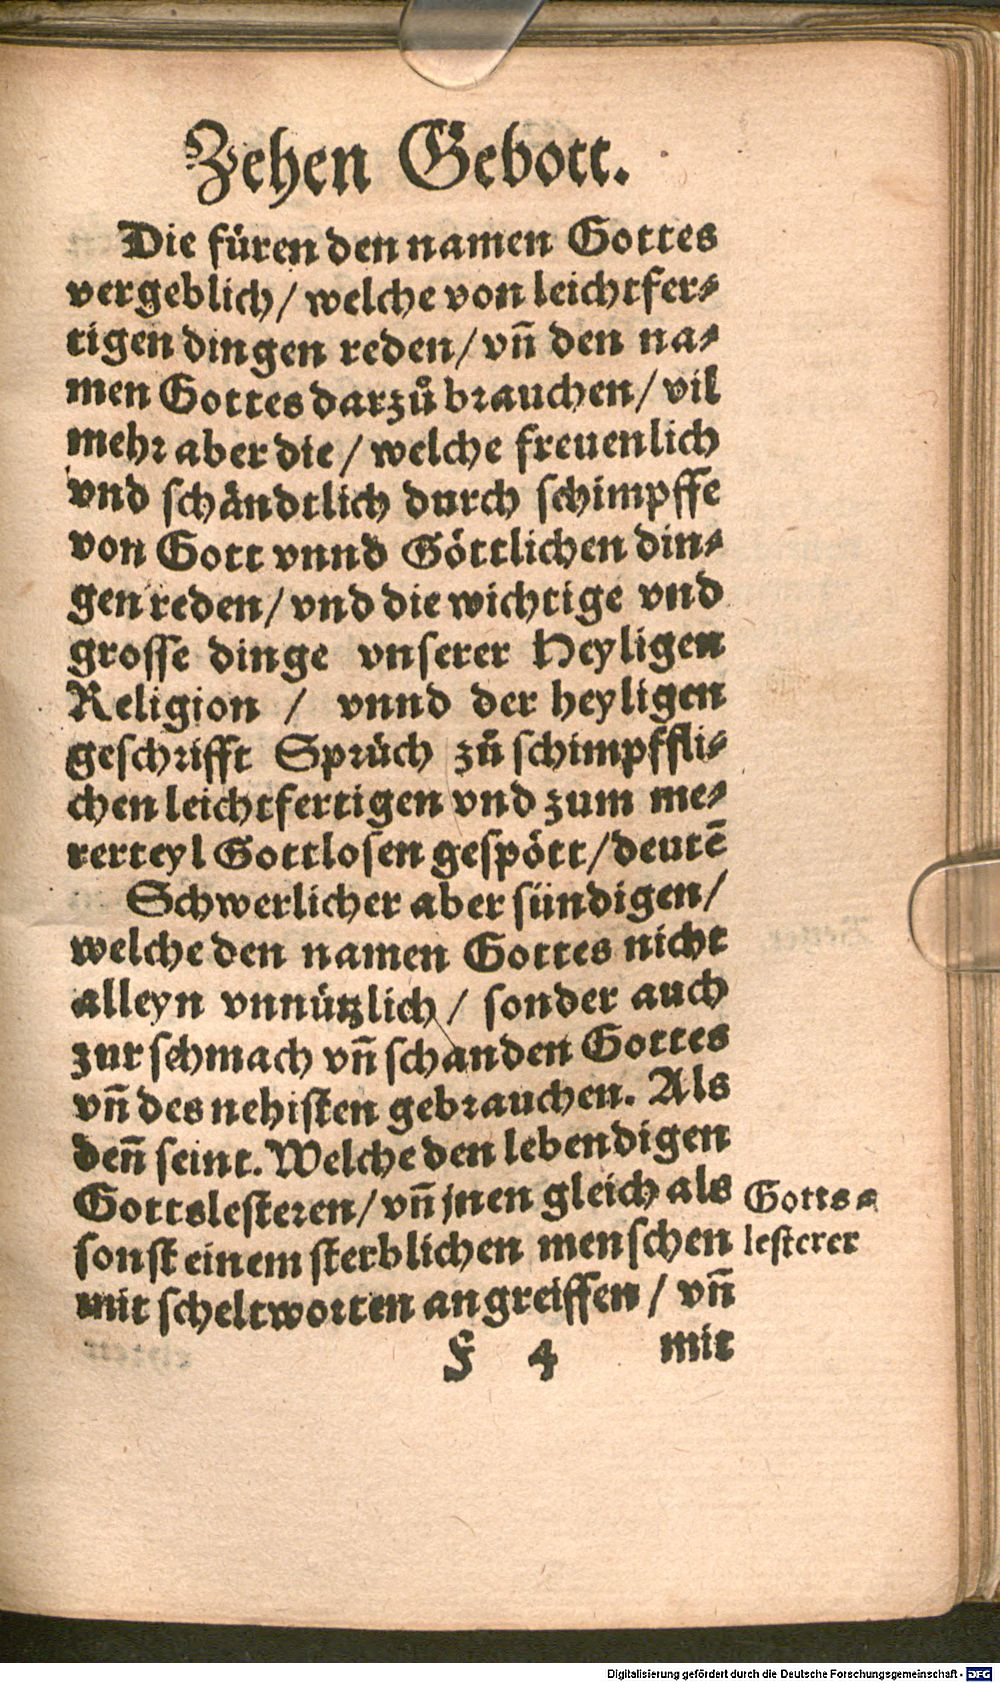 Zehen Gebott.
Die füren den namen Gottes
vergeblich / welche von leichtfer⸗
tigen dingen reden / vñ den na⸗
men Gottes darzů brauchen / vil
mehr aber die / welche freuenlich
vnd schändtlich durch schimpffe
von Gott vnnd Göttlichen din⸗
gen reden / vnd die wichtige vnd
grosse dinge vnserer Heyligen
Religion / vnnd der heyligen
geschrifft Sprüch zů schimpffli⸗
chen leichtfertigen vnd zum me⸗
rerteyl Gottlosen gespött / deutē
Schwerlicher aber sündigen /
welche den namen Gottes nicht
alleyn vnnützlich / sonder auch
zur schmach vñ schanden Gottes
vñ des nehisten gebrauchen. Als
deñ seint. Welche den lebendigen
Gottslesteren / vñ jnen gleich als
Gotts⸗
sonst einem sterblichen menschen
lesterer
mit scheltworten angreiffen / vñ
F 4 mit
Digitalisierung gefördert durch die Deutsche Forschungsgemeinschaft - DFG